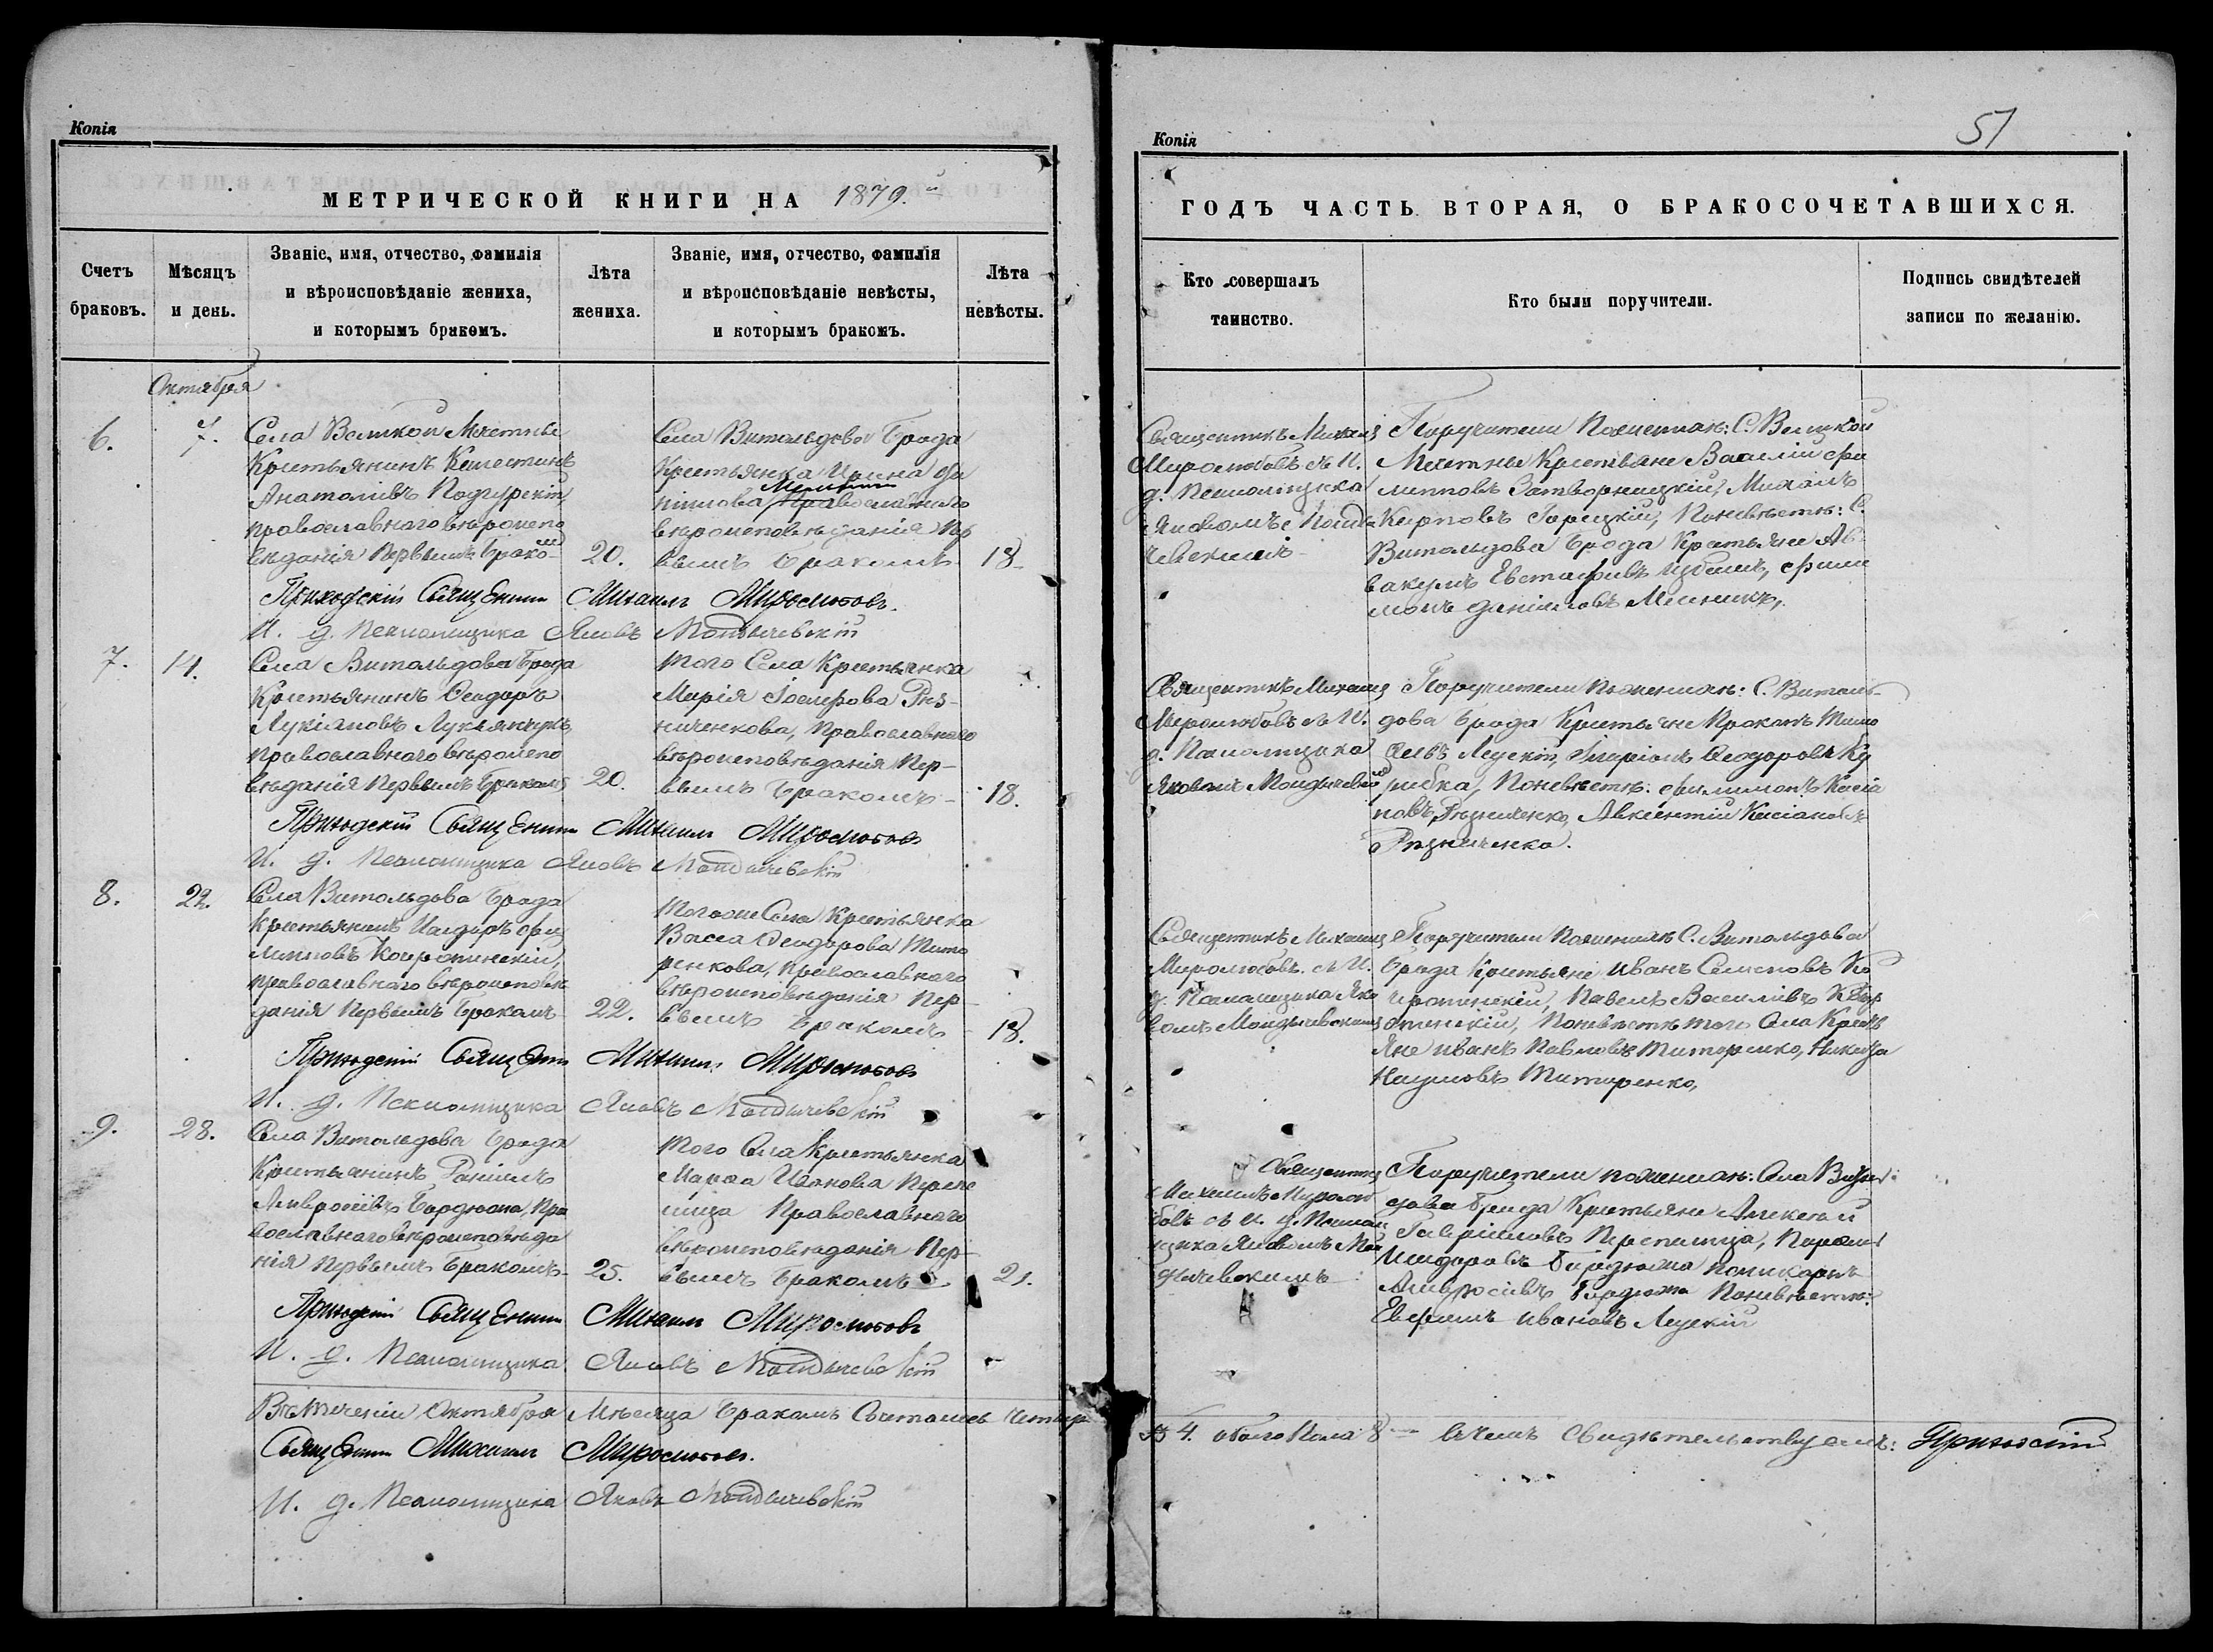 Копія
МЕТРИЧЕСКОЙ КНИГИ НА 1879.й
Счетъ браковъ.
Мѣсяцъ и день.
Званіе, имя, отчество, фамилія
и вѣроисповѣданіе жениха,
и которымъ бракомъ.
Лѣта
жениха.
Званіе, имя, отчество, фамилія
и вѣроисповѣданіе невѣсты,
и которымъ бракомъ.
Лѣта
невѣсты.
Октября
6.
7.
Села Великой Мечетные
Крестьянинъ Келестинъ
Анатоліевъ Подгурскій,
православнаго вѣроиспо
вѣданія Первымъ Бракомъ
20.
Села Витольдова Брода
Крестьянка Ирина
Православнаго
вѣроисповѣданія Пер
вымъ Бракомъ
18.
Приходскій Священникъ Михаилъ Миролюбовъ.
И. д. Псаломщика Яковъ
7.
14.
Села Витольдова Брода
Крестьянинъ Ѳеодоръ
Лукіановъ Лукьянчукъ,
православнаго вѣроиспо
вѣданія Первымъ Бракомъ
20.
Того Села Крестьянка
Марія Іосифова Рѣз-
ниченкова, Православнаго
вѣроисповѣданія Пер-
вымъ Бракомъ
18.
Приходскій Священникъ Михаилъ Миролюбовъ
И. д. Псаломщика Яковъ
8.
22.
Села Витольдова Брода
Крестьянинъ Исидоръ Фи
липповъ
православнаго вѣроисповѣ
данія Первымъ Бракомъ
22.
Тогоже Села Крестьянка
Васса Ѳеодорова Тита
ренкова, православнаго
вѣроисповѣданія Пер-
вымъ Бракомъ
18.
Приходскій Священникъ Михаилъ Миролюбовъ
И. д. Псаломщика Яковъ
9.
28.
Села Витольдова Брода
Крестьянинъ Даніилъ
Амвросіевъ Бардюжа, Пра
вославнаго вѣроисповѣда
нія Первымъ Бракомъ
25.
Того Села Крестьянка
Марѳа Иванова Перепе
лица Православнаго
вѣроисповѣданія Пер-
вымъ Бракомъ
21.
Приходскій Священникъ Михаилъ Миролюбовъ
И. д. Псаломщика Яковъ
Въ Теченіи Октября Мѣсяца Бракомъ Сочеталось Четыре
Священникъ Михаилъ Миролюбовъ.
И. д. Псаломщика Яковъ
Копія
51
ГОДЪ ЧАСТЬ ВТОРАЯ, О БРАКОСОЧЕТАВШИХСЯ.
Кто совершалъ
таинство.
Кто были поручители.
Подпись свидѣтелей
записи по желанію.
Священникъ Михаилъ
Миролюбовъ съ И.
д. Псаломщика
Яковомъ
Поручители Поженихъ: С. Великой
Мечетные Крестьяне Василій Фи
липповъ Затворницкій, Михаилъ
Карповъ Горецкій, Поневѣстѣ: С.
Витольдова Брода Крестьяне Ав
вакумъ Евстафіевъ Фили
монъ Даніиловъ Мельникъ,
Священникъ Михаилъ
Миролюбовъ съ И.
д. Псаломщика
Яковомъ
Поручители Поженихъ: С. Витоль-
дова Брода Крестьяне Прокопъ Тимо
Ѳеодоровъ
Поневѣстѣ: Филимонъ Касіа
новъ Рѣзниченко, Авксентій Касіановъ
Рѣзниченко.
Священникъ Михаилъ
Миролюбовъ съ И.
д. Псаломщика Яко
вомъ
Поручители Поженихъ С. Витольдова
Брода Крестьяне Иванъ Семеновъ
Павелъ Василіевъ
Поневѣстѣ того Села Кресть
яне Иванъ Павловъ Титаренко, Никита
Наумовъ Титаренко,
Священникъ
Михаилъ Миролю
бовъ съ И. д. Псалом
щика Яковомъ
Поручители поженихъ: Села Витоль
дова Брода Крестьяне Алексѣй
Гавріиловъ Перепелица,
Исидоровъ Бардюжа Поликарпъ
Амвросіевъ Бардюжа Поневѣстѣ:
Ефремъ Ивановъ
4. обоего Пола 8 — въ чемъ Свидѣтельствуемъ: Приходскій